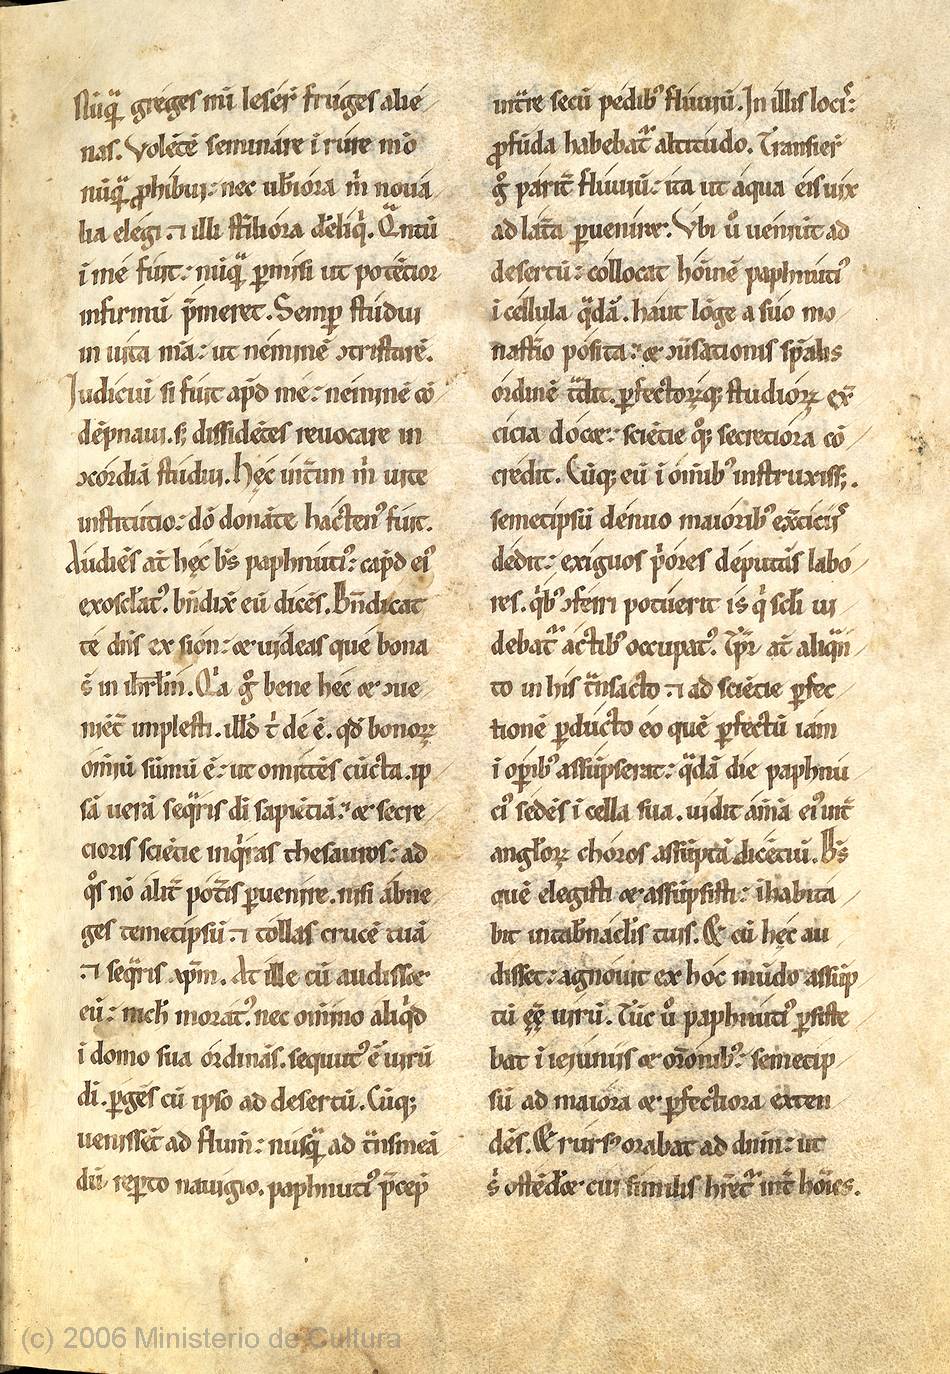 Nūq̄ greges mī leserˉ fruges alie
nas. Volētē seminare i rure mō
nūq̄ ꝓhibui: nec ub̄iora m̄ noua
lia elegi. ⁊ illi st̄iliora deliq̄. Qn̄tū
i me fuit: nūq̄ ꝑmisi ut potētior
infirmū p̄meret. Semꝑ studui
in uita m̄a: ut neminē ꝯtristarē.
Iudiciū si fuit apd̄ me: neminē cō
dēpnaui. s; dissidētes reuocare in
ꝯcordiā studui. Hęc int̄im m̄ uite
institutio: dō donāte hacten᷒ fuit.
Audiēs at̄ hęc bs̄ paphnuti᷒: capd̄ ei᷒
exoscl̄at᷒. bn̄dix̄ eū dicēs. Bn̄dicat
te dn̄s ex sion: ⁊ uideas que bona
s̄ in ihrl̄m. Qͥa gͦ bene hec ⁊ ꝯue
niēt̄ implesti. illd̄ t̄ de ē. qd̄ bonoꝝ
om̄iū sūmū ē: ut omittēs cūcta. ip
sā uerā seq̄ris di sapiētiā: ⁊ secre
cioris sciētie inqͥras thesauros: ad
qͦs nō alit̄ pot̄is ꝑuenire. nisi abne
ges temetipsū. ⁊ tollas crucē tuā
⁊ seq̄ris xp̄m. At ille cū audisset
eū: nich̄ morat᷒. nec omnino aliqͥd
i domo sua ordinās. sequut᷒ ē uirū
di. ꝑgēs cū ipso ad desertū. Cūq;
uenissēt ad flum̄: nusq̄ ad tn̄smeā
dū reꝑto nauigio. paphnuti᷒ p̄cep̄
int̄re secū pedib᷒ fluuiū. In illis loci᷒:
ꝓfūda habebatᷣ altitudo. Transierˉ
gͦ parit̄ fluuiū: ita ut aqua eis uix
ad lat̄a ꝑuenire. Vbi uͦ uenit ad
desertū: collocat hoīnē paphnuti᷒
i cellula q̄dā. haut lōge a suo mo
nast̄io posita: ⁊ ꝯūsationis spālis
ordinē t̄dit. ꝑfectoꝝq; studioꝝ ex̄
cicia docet: sciētie qͦ; secretiora cō
credit. Cūq; eū i om̄ib᷒ instruxiss;.
semetipsū denuo maiorib᷒ ex̄ciciis
dedit: exiguos p̄ores deputās labo
res. qͥb᷒ ꝯferri potuerit is qͥ scl̄i ui
debatᷣ actib᷒ occupat᷒. Tp̄r at̄ aliqn̄
to in his tn̄sacto ⁊ ad sciētie ꝑfec
tionē ꝑducto eo quē ꝑfectū iam
i oꝑib᷒ assūpserat: q̄dā die paphnu
ci᷒ sedēs i cella sua. uidit aīmā ei᷒ int̄
angl̄oꝝ choros assūptā dicētiū. Bs̄
quē elegisti ⁊ assūpsisti: ihabita
bit in tab̄nacl̄is tuis. Et cū hęc au
disset: agnouit ex hoc mūdo assūp
tū eē uirū. Tūc uͦ paphnuti᷒ ꝑsiste
bat i ieiuniis ⁊ oronib᷒: semetip
sū ad maiora ⁊ ꝑfectiora exten
dēs. Et rurs᷒ orabat ad dnm: ut
s̄ ostēdet᷒ cui similis hr̄et᷒ int̄ hoīes.
(c) 2006 Ministerio de Cultura